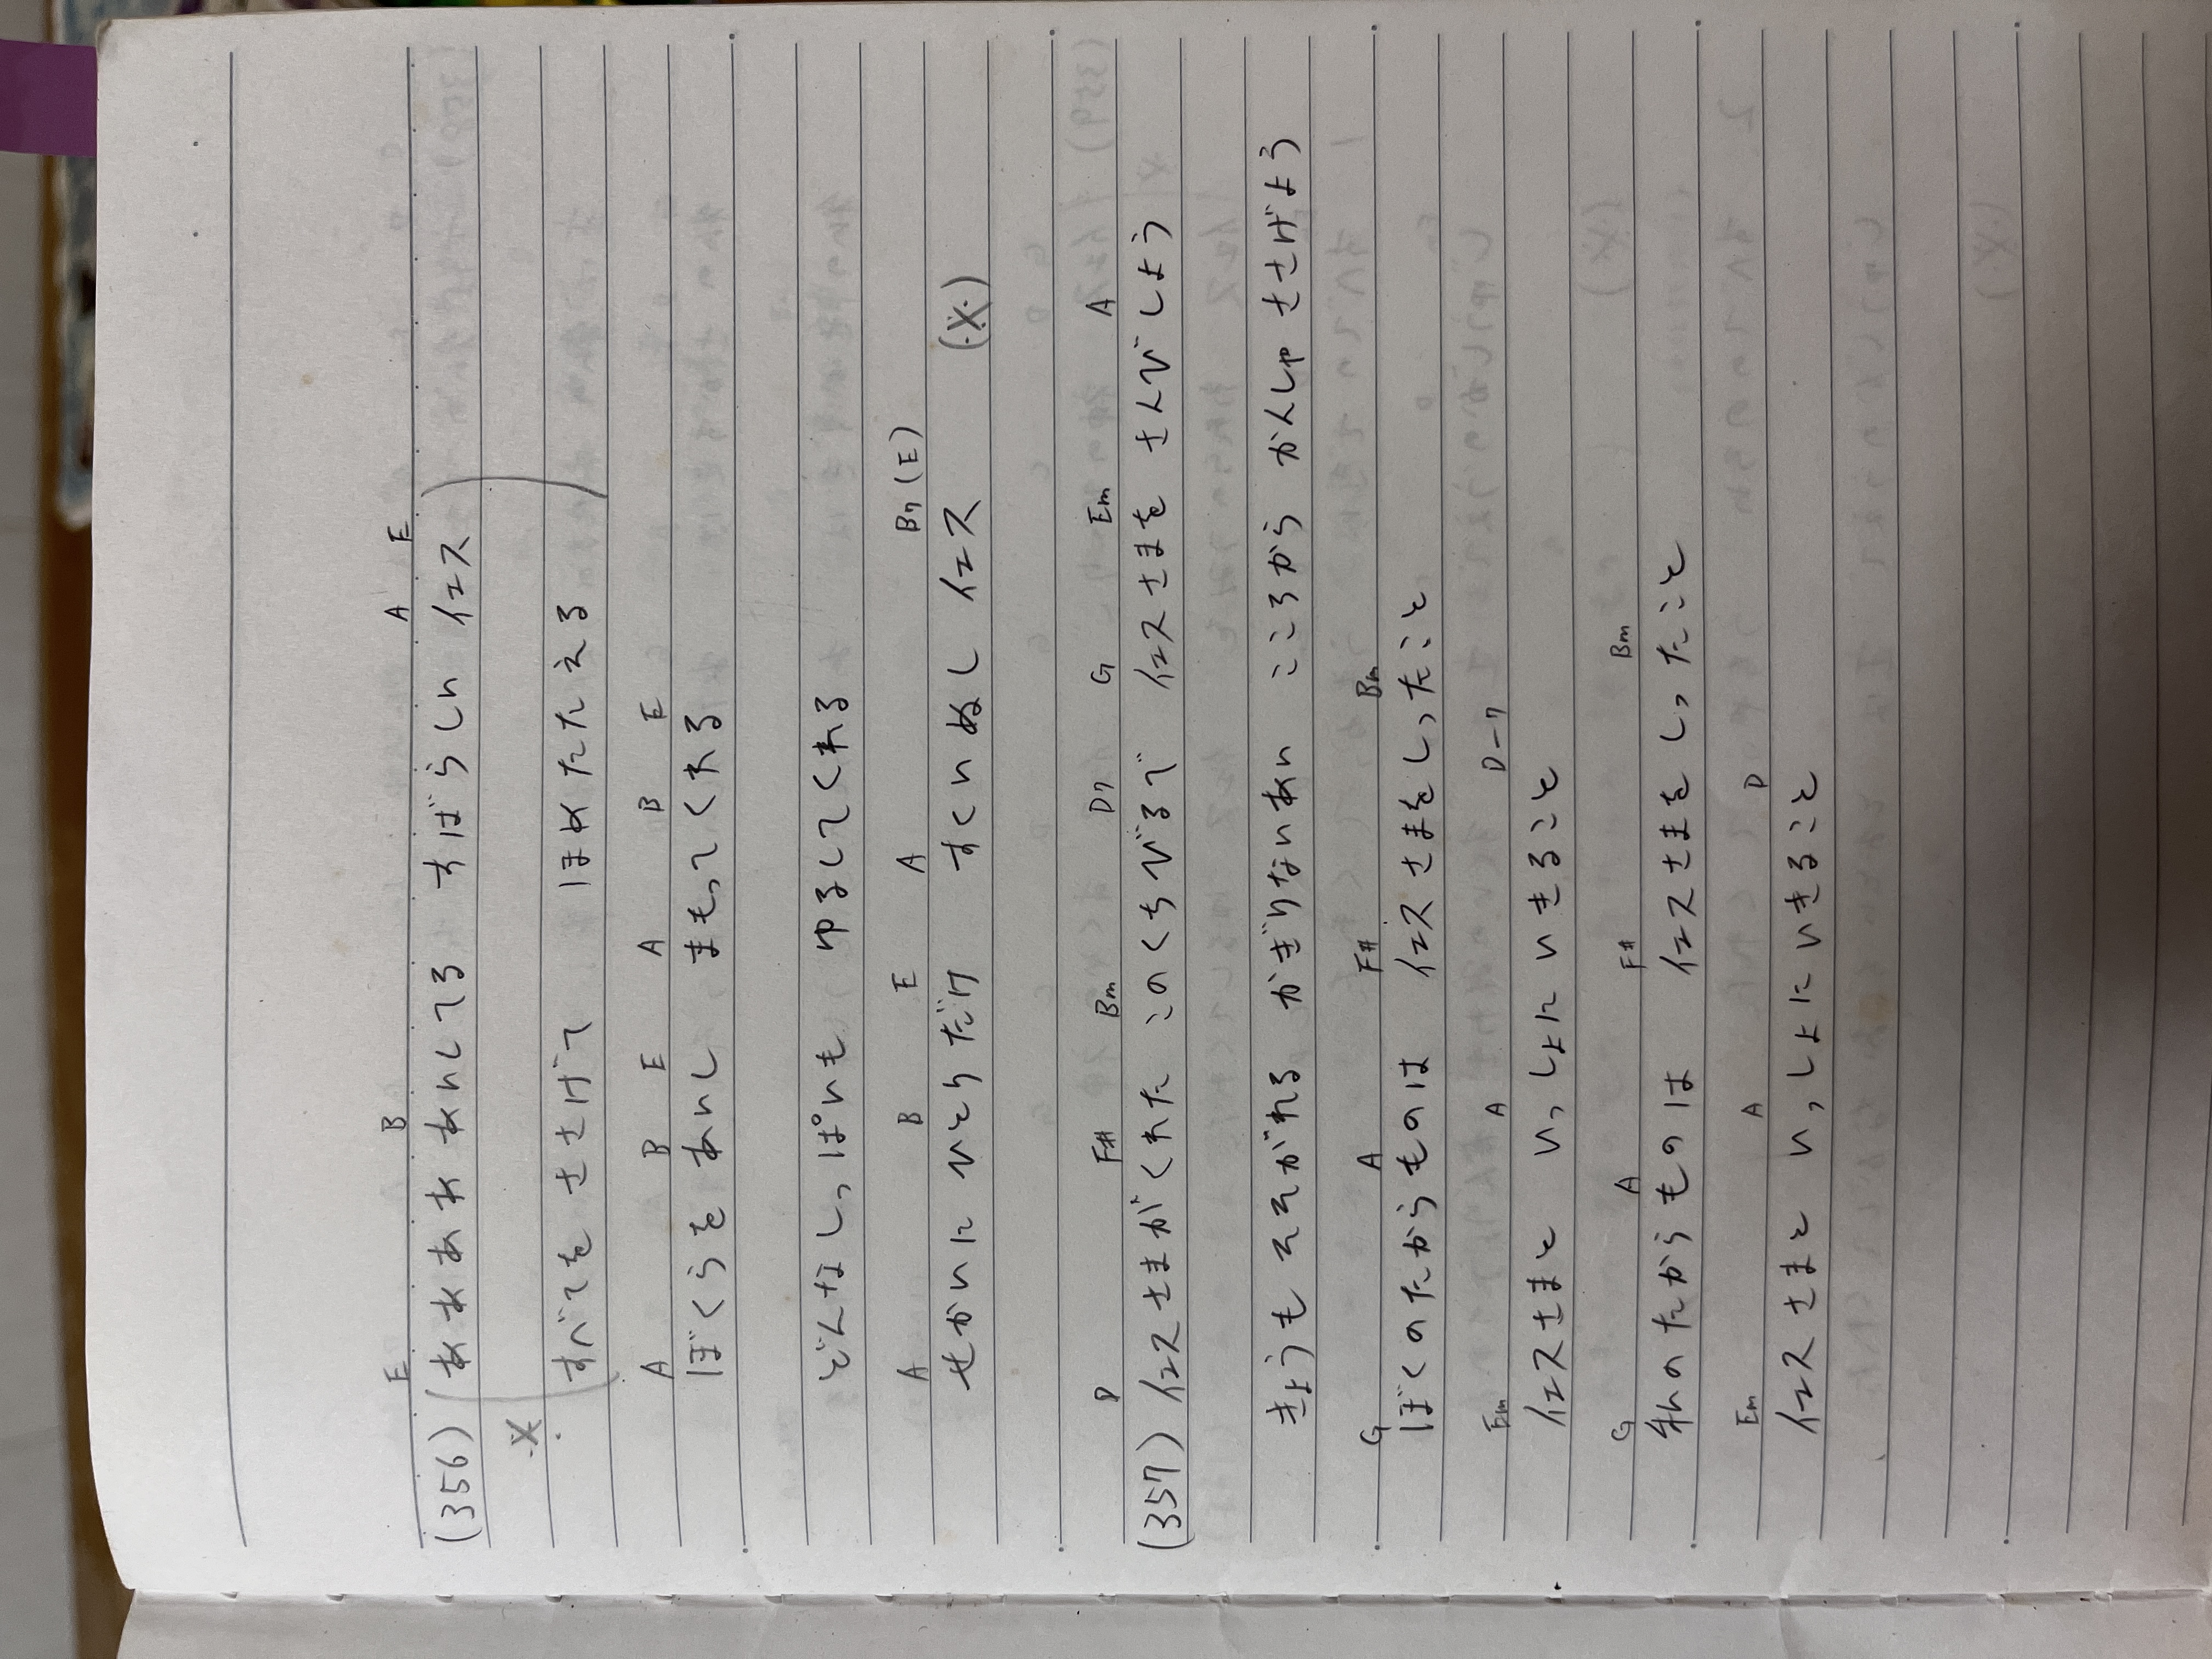 E B A A E
(356) ああああ あいしてる すばらしい イエス
※ すべてを ささげて ほめたたえる
A B E A B E
ぼくらを あいし まもってくれる
どんなしっぱいも ゆるしてくれる
A B E A B7 (E)
せかいに ひとりだけ すくいぬし イエス (※)
D F# Bm D7 G Em A
(357) イエスさまがくれた このくちびるで イエスさまを さんびしよう
きょうも そそがれる かぎりないあい こころから かんしゃ ささげよう
G A F# Bm
ぼくのたからものは イエスさまをしったこと
Em A D-7
イエスさまと いっしょに いきること
G A F# Bm
私のたからものは イエスさまを しったこと
Em A D
イエスさまと いっしょにいきること